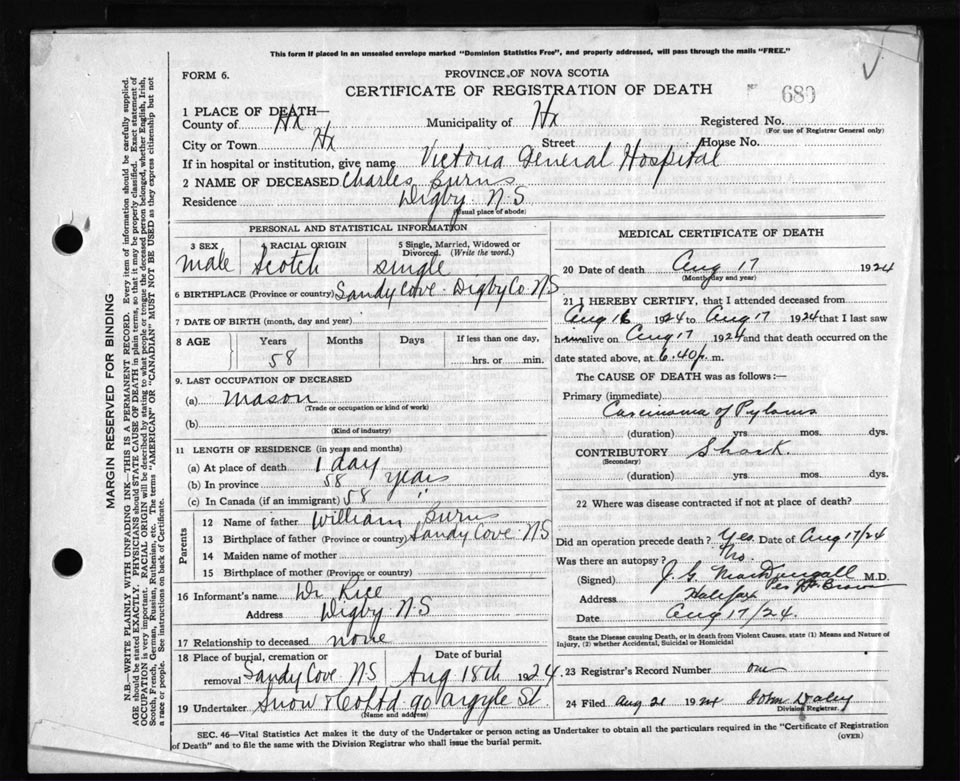 This form if placed in an unsealed envelope marked "Dominion Statistics Free", and properly addressed, will pass through the mails "FREE."
FORM 6.
PROVINCE OF NOVA SCOTIA
CERTIFICATE OF REGISTRATION OF DEATH
680
1 PLACE OF DEATH—
County of Hx Municipality of Hx Registered No.
(For use of Registrar General only)
City or Town Hx Street House No.
If in hospital or institution, give name Victoria General Hospital
2 NAME OF DECEASED Charles Burns
Residence Digby N.S
(Usual place of abode)
PERSONAL AND STATISTICAL INFORMATION
3 SEX RACIAL ORIGIN 5 Single, Married, Widowed or Divorced. (Write the word.)
male Scotch single
6 BIRTHPLACE (Province or country) Sandy Cove Digby Co. N.S
7 DATE OF BIRTH (month, day and year)
8 AGE Years Months Days If less than one day,
58 hrs. or min.
9. LAST OCCUPATION OF DECEASED
(a) Mason
(Trade or occupation or kind of work)
(b)
(Kind of industry)
11 LENGTH OF RESIDENCE (in years and months)
(a) At place of death 1 day
(b) In province 58 years
(c) In Canada (if an immigrant) 58 "
Parents
12 Name of father William Burns
13 Birthplace of father (Province or country) Sandy Cove N.S
14 Maiden name of mother
15 Birthplace of mother (Province or country)
16 Informant's name Dr Rice
Address Digby N.S
17 Relationship to deceased none
18 Place of burial, cremation or removal Sandy Cove N.S Date of burial Aug 18th 1924
19 Undertaker Snow & Co Ltd 90 Argyle St
(Name and address)
MEDICAL CERTIFICATE OF DEATH
20 Date of death Aug 17 1924
(Month, day and year)
21 I HEREBY CERTIFY, that I attended deceased from
Aug 16 1924 to Aug 17 1924 that I last saw
him alive on Aug 17 1924 and that death occurred on the
date stated above, at 6.40 p. m.
The CAUSE OF DEATH was as follows:—
Primary (immediate)
Carcinoma of Pylorus
(duration) yrs mos. dys.
CONTRIBUTORY Shock.
(Secondary)
(duration) yrs. mos. dys.
22 Where was disease contracted if not at place of death?
Did an operation precede death? Yes. Date of Aug 17/24
Was there an autopsy? No.
(Signed) J. G. MacDougall M.D.
Address Halifax
Date Aug 17/24.
State the Disease causing Death, or in death from Violent Causes, state (1) Means and Nature of
Injury, (2) whether Accidental, Suicidal or Homicidal
23 Registrar's Record Number one
24 Filed Aug 21 1924 John Daley
Division Registrar.
SEC. 46—Vital Statistics Act makes it the duty of the Undertaker or person acting as Undertaker to obtain all the particulars required in the "Certificate of Registration
of Death" and to file the same with the Division Registrar who shall issue the burial permit.
(OVER)
MARGIN RESERVED FOR BINDING
N.B.—WRITE PLAINLY WITH UNFADING INK—THIS IS A PERMANENT RECORD. Every item of information should be carefully supplied.
AGE should be stated EXACTLY. PHYSICIANS should STATE CAUSE OF DEATH in plain terms, so that it may be properly classified. Exact statement of
OCCUPATION is very important. RACIAL ORIGIN will be described by stating to what people or tongue the deceased person belonged, whether English, Irish,
Scotch, French, German, Russian, Ruthenian, etc. The terms "AMERICAN" OR "CANADIAN" MUST NOT BE USED as they express citizenship but not
a race or people. See instructions on back of Certificate.